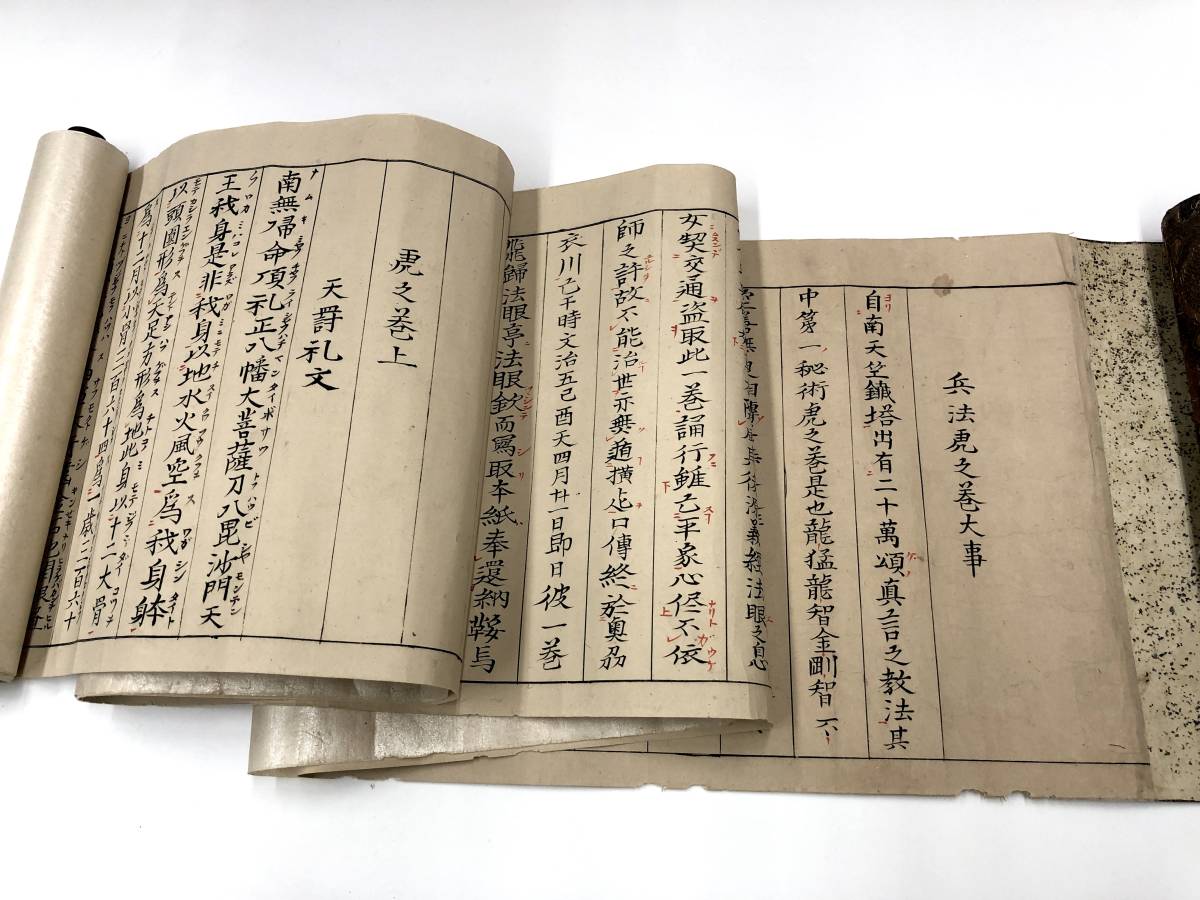 兵法虎之巻大事
自南天竺鐵塔出有二十萬頌真言之教法其
中第一秘術虎之巻是也龍猛龍智金剛智不
法眼之息
女契交通盗取此一巻誦行雖亡平家心侭不依
師之許故不能治世示無道横
口傳終於奥刕
衣川已于時文治五己酉天四月廿一日即日彼一巻
龍歸法眼亭法眼欽而寫取本紙奉還納鞍馬
虎之巻上
天罸礼文
南無帰命頂礼正八幡大菩薩刀八毘沙門天
王我身是非我身以地水火風空為我身体
以頭圓形為天足方形為地此身以十二大骨
為十二月以小骨三百六十四為一歳三百六十